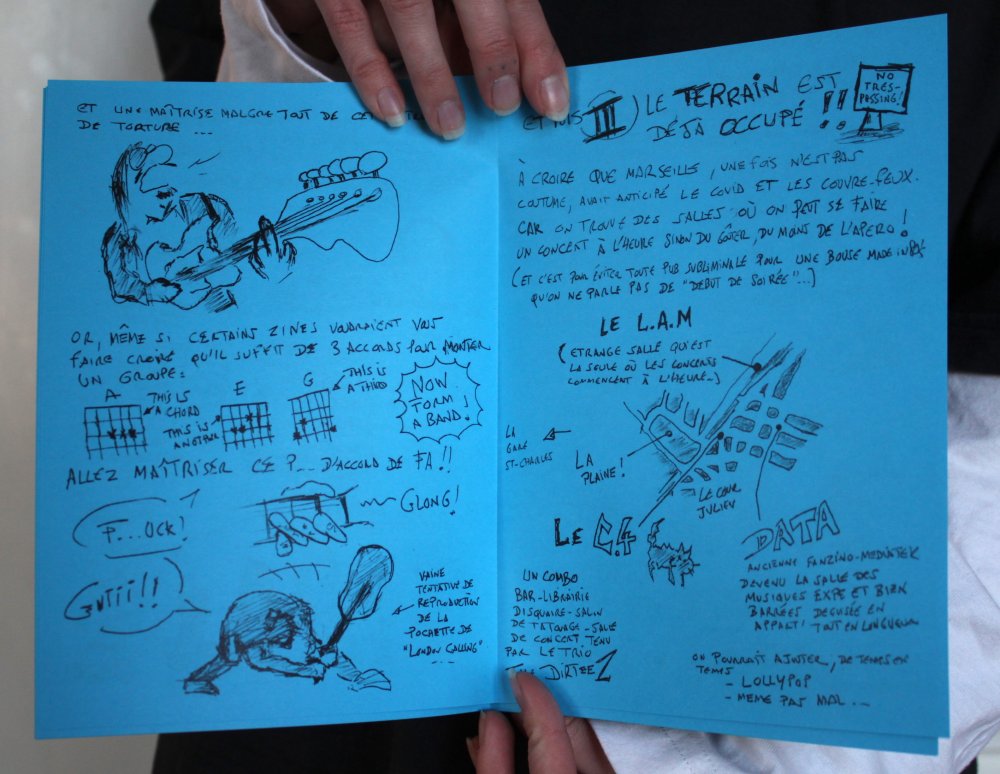 ET UNE MAÎTRISE MALGRÉ TOUT DE CET
DE TORTURE ...
OR, MÊME SI CERTAINS ZINES VOUDRAIENT VOUS
FAIRE CROIRE QU'IL SUFFIT DE 3 ACCORDS POUR MONTER
UN GROUPE :
A
THIS IS
A CHORD
THIS IS
ANOTHER
E
G
THIS IS
A THIRD
NOW
FORM
A BAND!
ALLEZ MAÎTRISER CE P... D'ACCORD DE FA !!
F...OCK!
GLONG!
VAINE
TENTATIVE DE
REPRODUCTION
DE LA
POCHETTE DE
"LONDON CALLING"
...
ET PUIS III LE TERRAIN EST
DÉJA OCCUPÉ !!
NO
TRES-
PASSING!
À CROIRE QUE MARSEILLE, UNE FOIS N'EST PAS
COUTUME, AVAIT ANTICIPÉ LE COVID ET LES COUVRE-FEUX.
CAR ON TROUVE DES SALLES OÙ ON PEUT SE FAIRE
UN CONCERT À L'HEURE SINON DU GOÛTER, DU MOINS DE L'APERO!
(ET C'EST POUR ÉVITER TOUTE PUB SUBLIMINALE POUR UNE BOUSE MADE IN
QU'ON NE PARLE PAS DE "DÉBUT DE SOIRÉE"...)
LE L.A.M
(ETRANGE SALLE QU'EST
LA SEULE OÙ LES CONCERTS
COMMENCENT À L'HEURE...)
LA
GARE
ST-CHARLES
LA
PLAINE!
LE COUR
JULIEN
LE C.4
UN COMBO
BAR-LIBRAIRIE
DISQUAIRE-SALON
DE TATOUAGE-SALLE
DE CONCERT TENU
PAR LE TRIO
DIRTEEZ
DATA
ANCIENNE FANZINO-MEDIATEK
DEVENU LA SALLE DES
MUSIQUES EXPE ET BIEN
BARRÉES DEGUISÉE EN
APPART! TOUT EN LONGUEUR
ON POURRAIT AJOUTER, DE TEMPS EN
TEMPS
- LOLLYPOP
- MEME PAS MAL ...